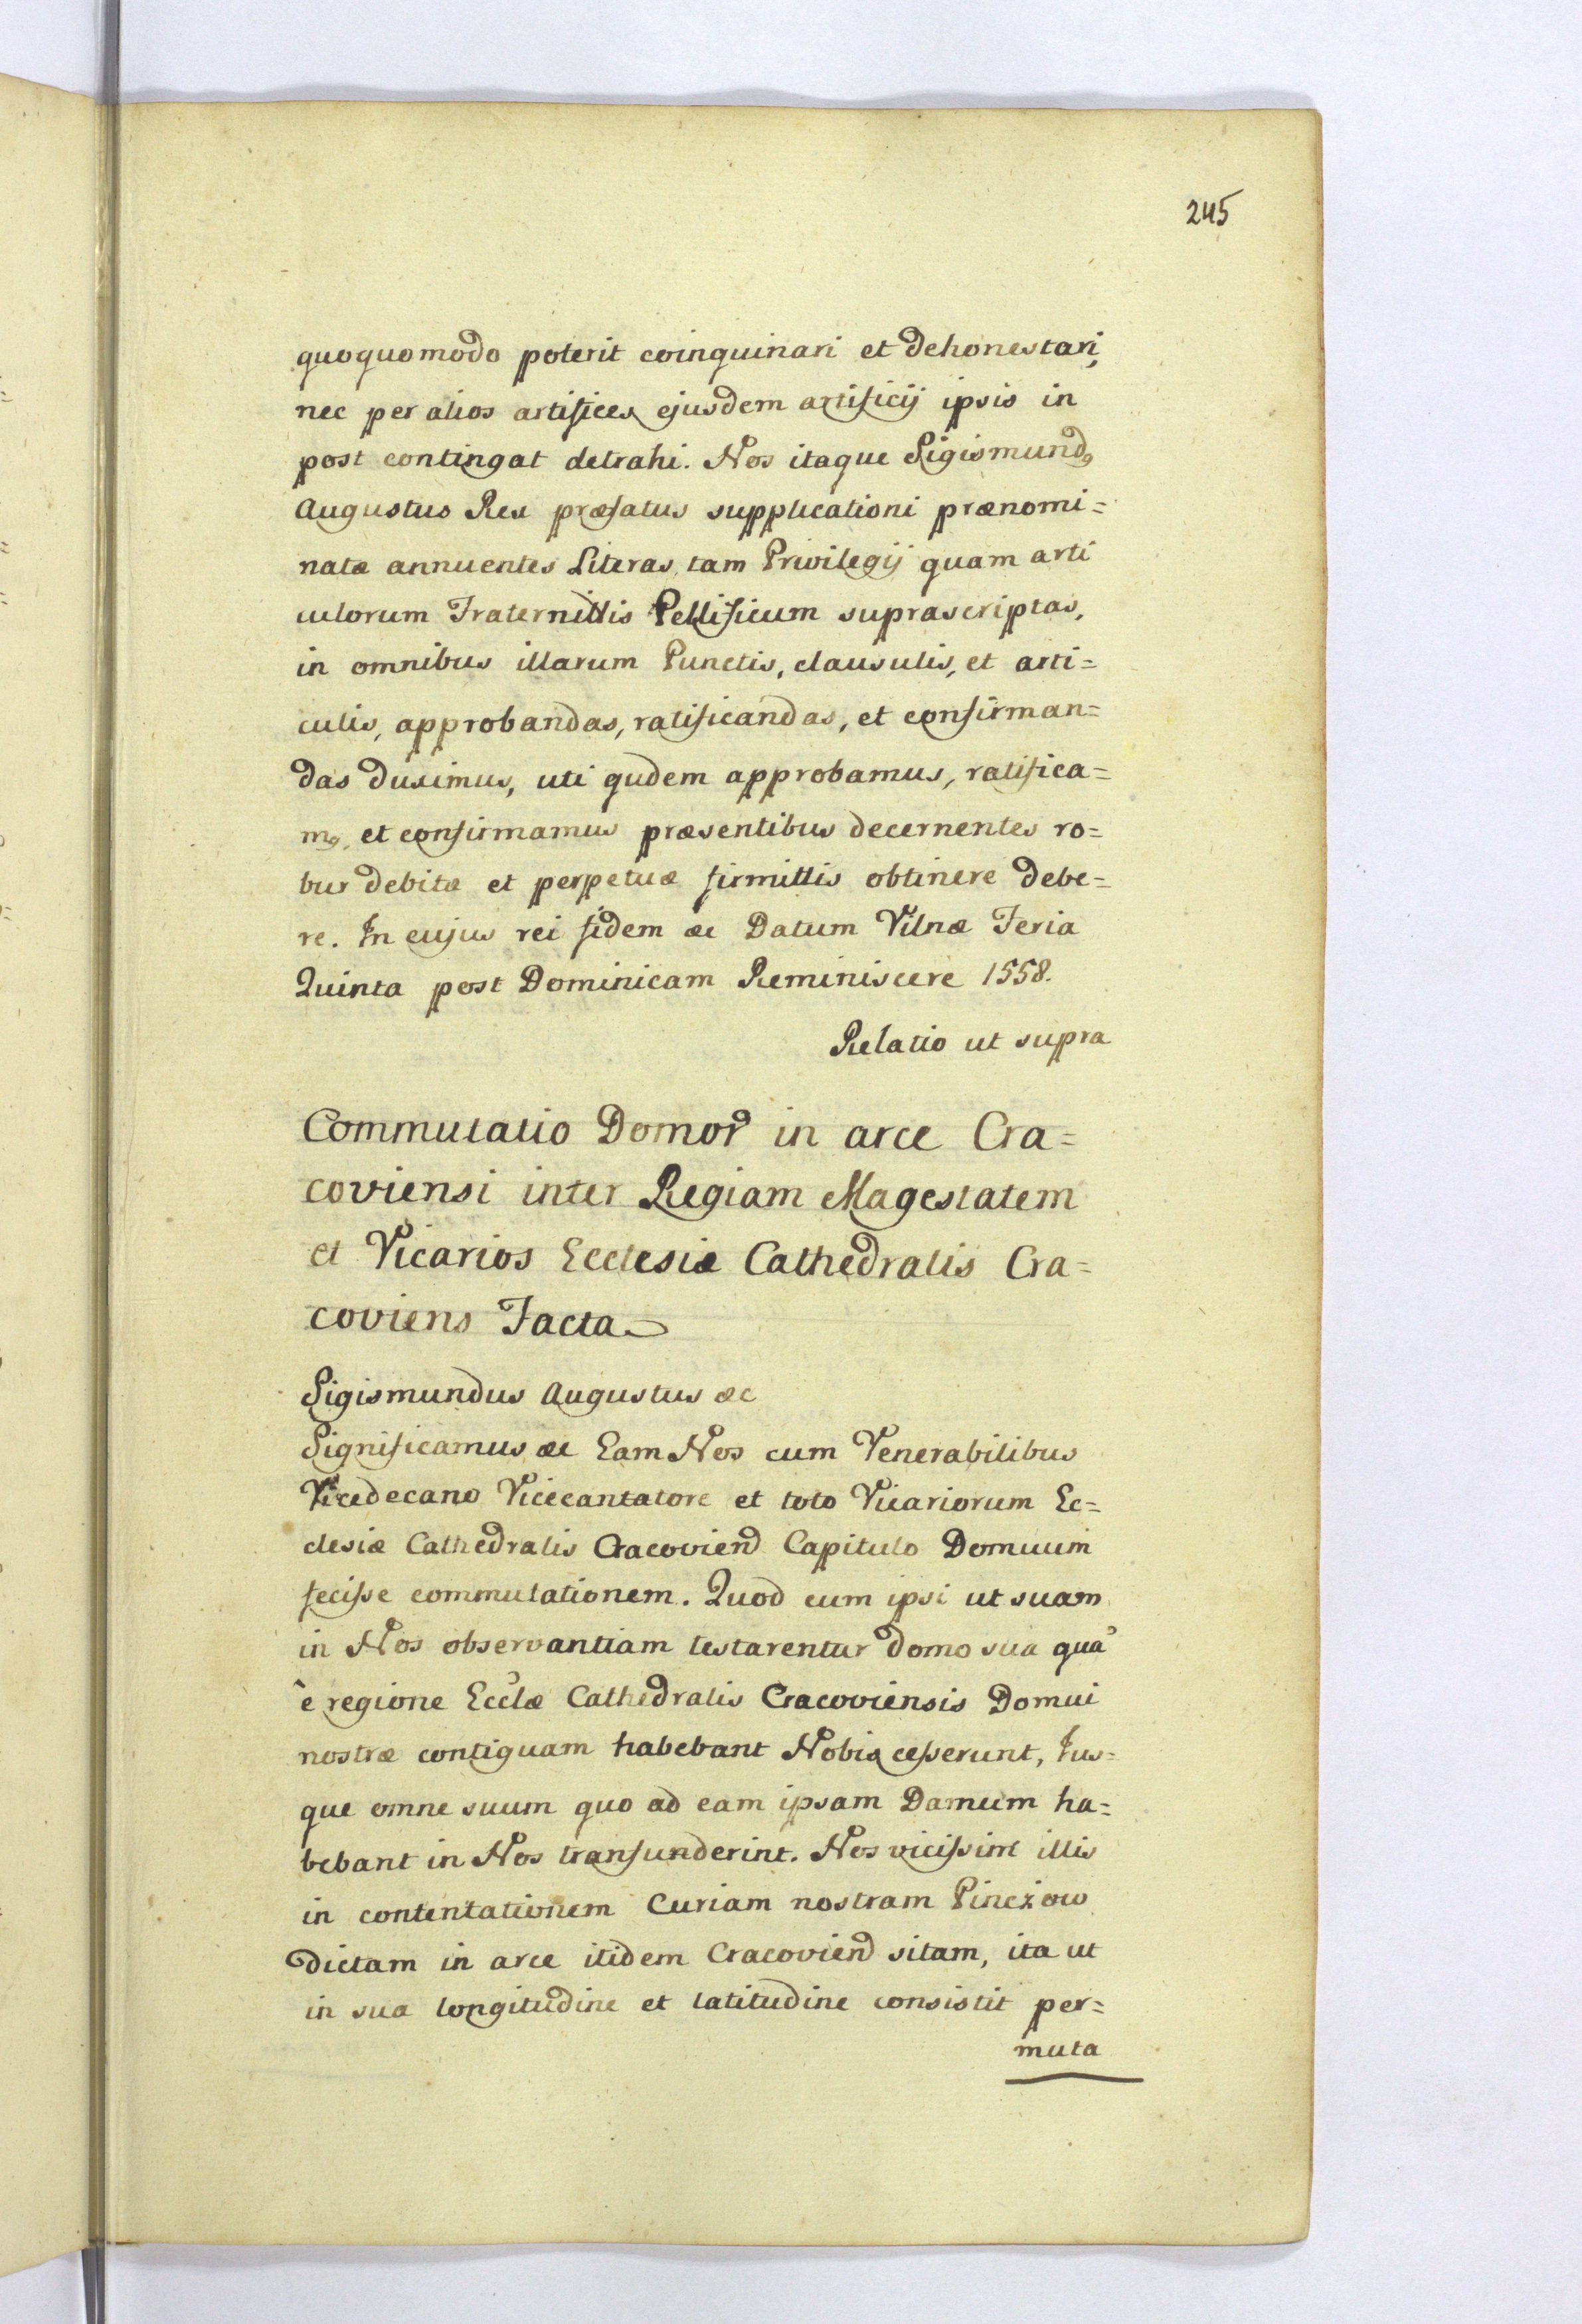 245
quoquomodo poterit coinquinari et dehonestari,
nec per alios artifices ejusdem artificij ipsis in
post contingat detrahi. Nos itaque Sigismundꝰ
Augustus Rex præfatus supplicationi prænomi=
natæ annuentes Literas tam Privilegij quam arti
culorum Fraternittis Pellificum suprascriptas,
in omnibus illarum Punctis, clausulis, et arti=
culis, approbandas, ratificandas, et confirman=
das duximus, uti qudem approbamus, ratifica=
mꝰ, et confirmamus præsentibus decernentes ro=
bur debitæ et perpetuæ firmittis obtinere debe=
re. In cujus rei fidem æc Datum Vilnæ Feria
Quinta post Dominicam Reminiscere 1558.
Relatio ut supra
Commutatio Domoꝝ in arce Cra=
coviensi inter Regiam Magestatem
et Vicarios Ecclesiæ Cathedralis Cra=
coviens Facta
Sigismundus Augustus æc
Significamus æc Eam Nos cum Venerabilibus
Vicedecano Vicecantatore et toto Vicariorum Ec=
clesiæ Cathedralis Cracovien Capitulo Domuum
fecisse commutationem. Quod cum ipsi ut suam
in Nos observantiam testarentur domo sua qua
è regione Ecclæ Cathedralis Cracoviensis Domui
nostræ contiguam habebant Nobis cesserunt, Jus=
que omne suum quo ad eam ipsam Damum ha=
bebant in Nos transfunderint. Nos vicissim illis
in contentationem Curiam nostram Pinczow
dictam in arce itidem Cracovien sitam, ita ut
in sua longitudine et latitudine consistit per=
muta